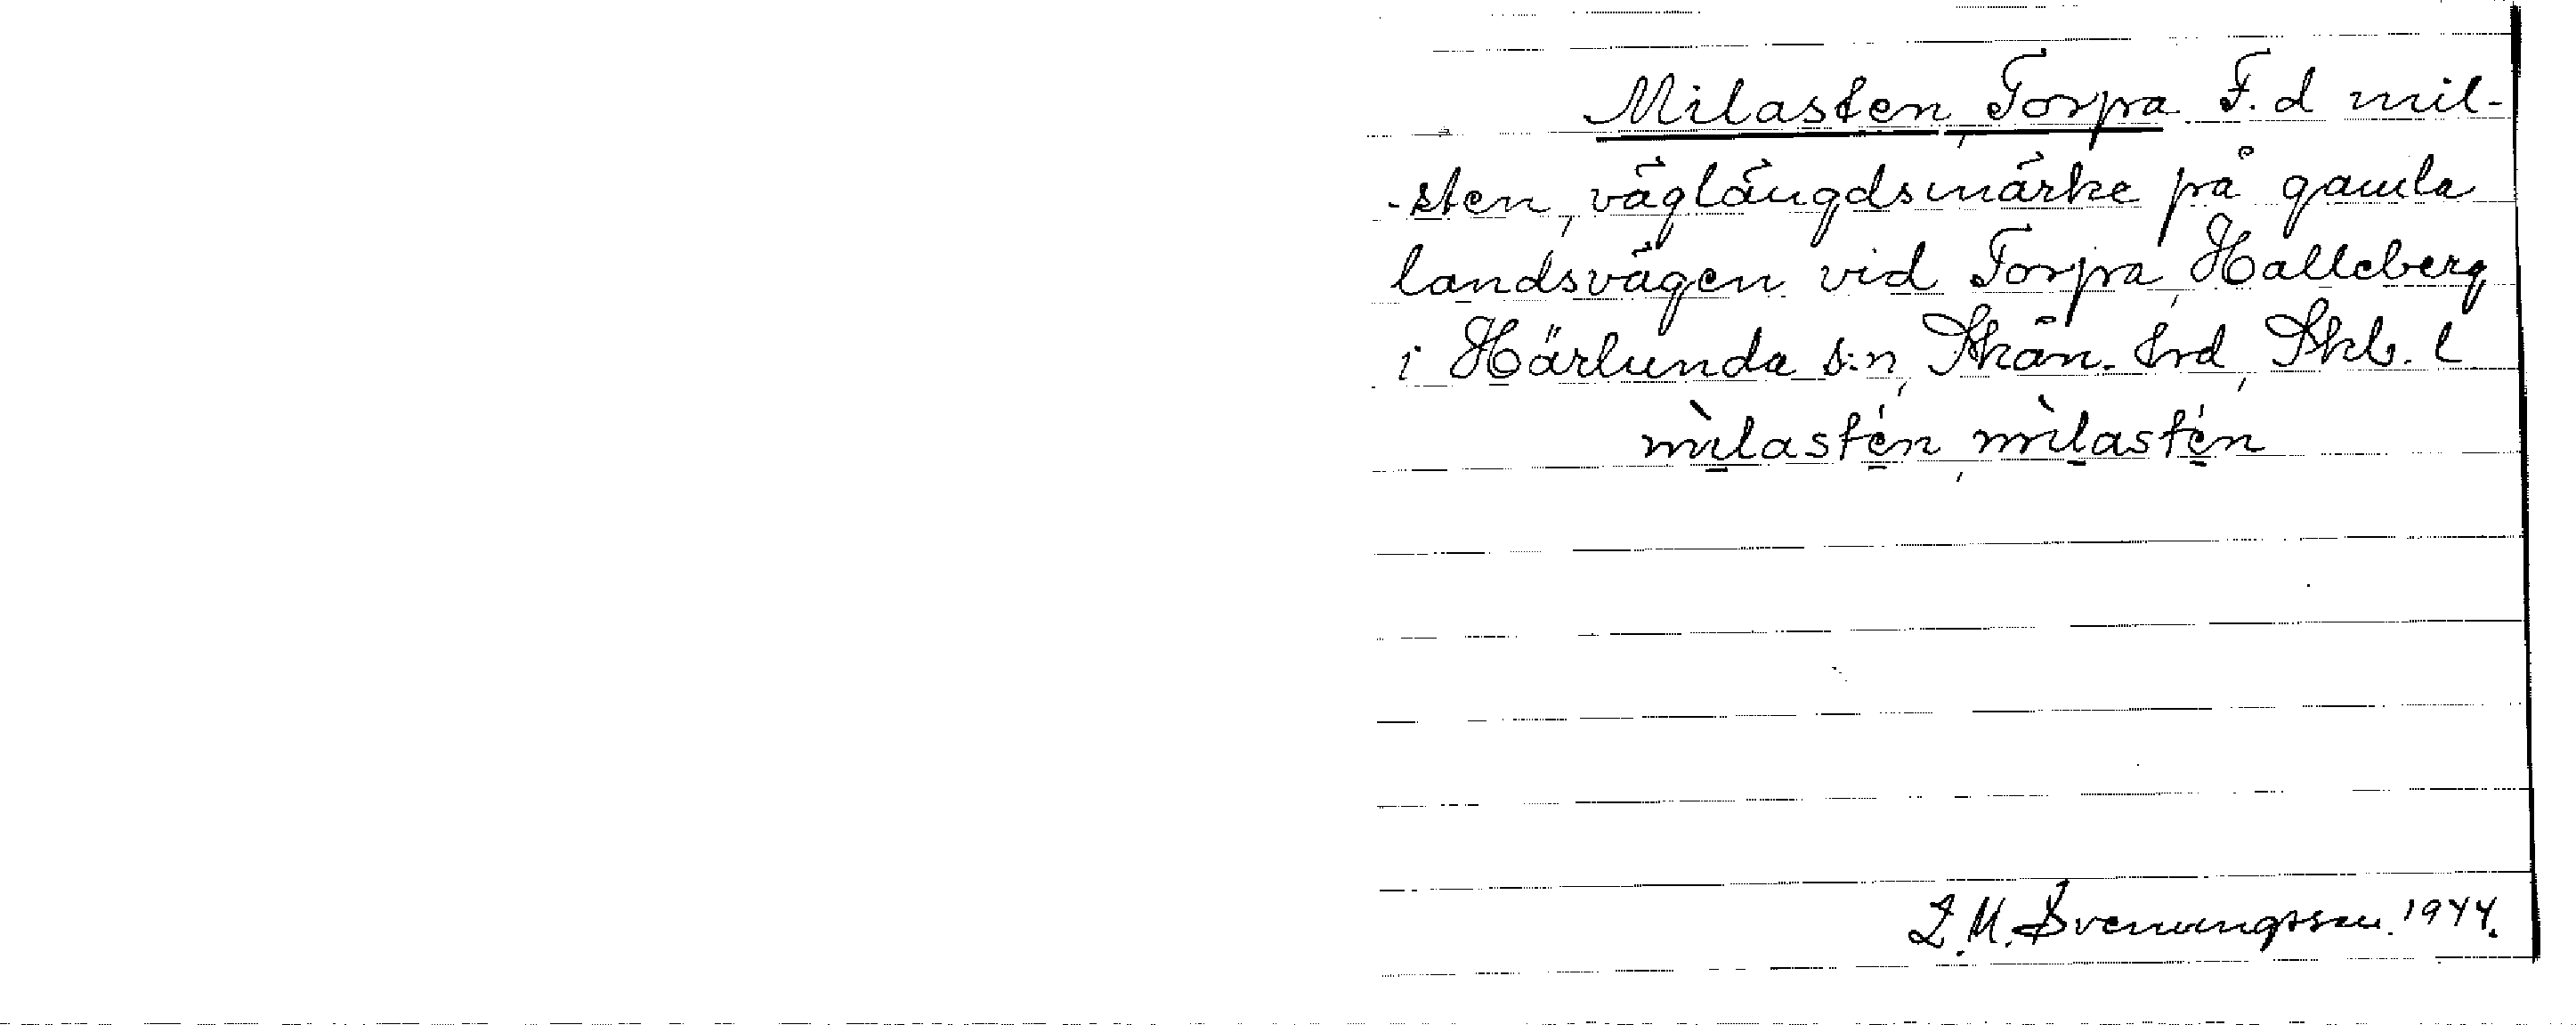 Milasten, Torpa F.d mil-
-sten, väglängdsmärke på gamla
landsvägen vid Torpa, Halleberg
i Härlunda s:n, Skån. hrd, Skb. l
mìlasté̱n, mìlasté̱n
L. M. Svenungsson. 1944.